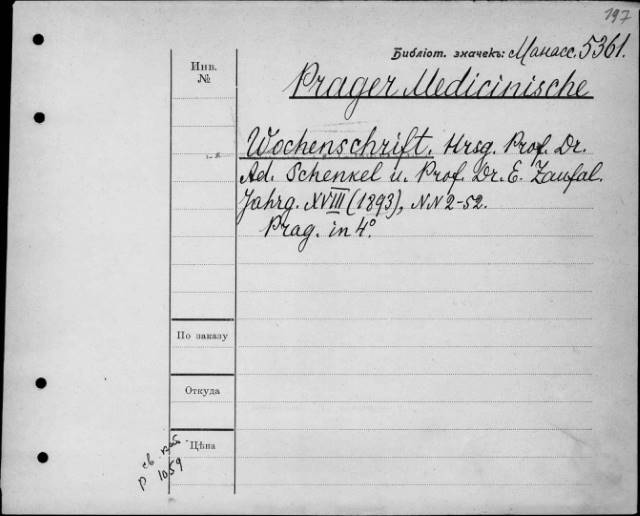 197
Библіот. значекъ: Манасс. 5361.
Инв.
№
Prager Medicinische
Wochenschrift. Hrsg. Prof. Dr.
Ad. Schenkel u. Prof. Dr. E. Zaufal.
Jahrg. XVIII (1893), NN 2-52.
Prag. in 4°.
По заказу
Откуда
Цѣна
р 1059